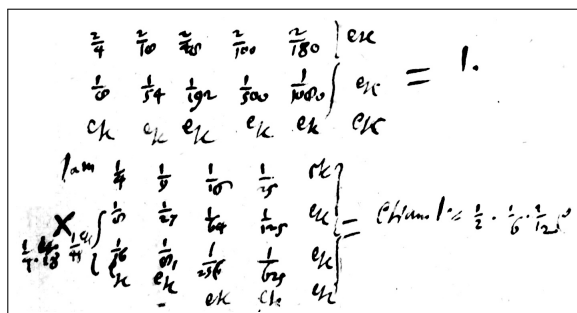 2/4 2/18 2/48 2/100 2/180 } etc
1/8 1/54 1/192 1/500 1/1080 } etc = 1.
etc etc etc etc etc etc
Iam 1/4 1/9 1/16 1/25 etc
1/8 1/27 1/64 1/125 etc } = etiam 1 = 1/2 . 1/6 . 1/12
1/16 1/81 1/256 1/625 etc
etc etc etc etc etc